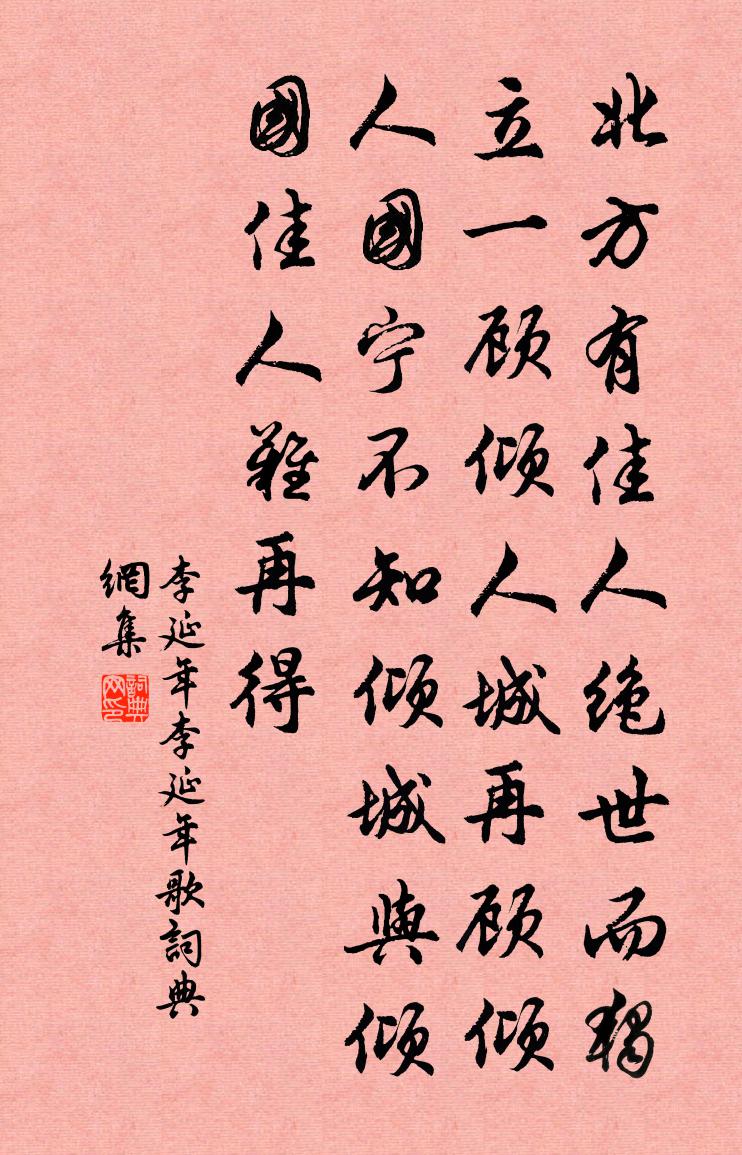 北方有佳人绝世而独
立一顾倾人城再顾倾
人國宁不知倾城與倾
國佳人難再得
李延年李延年歌詞典
網集
詞典
网印